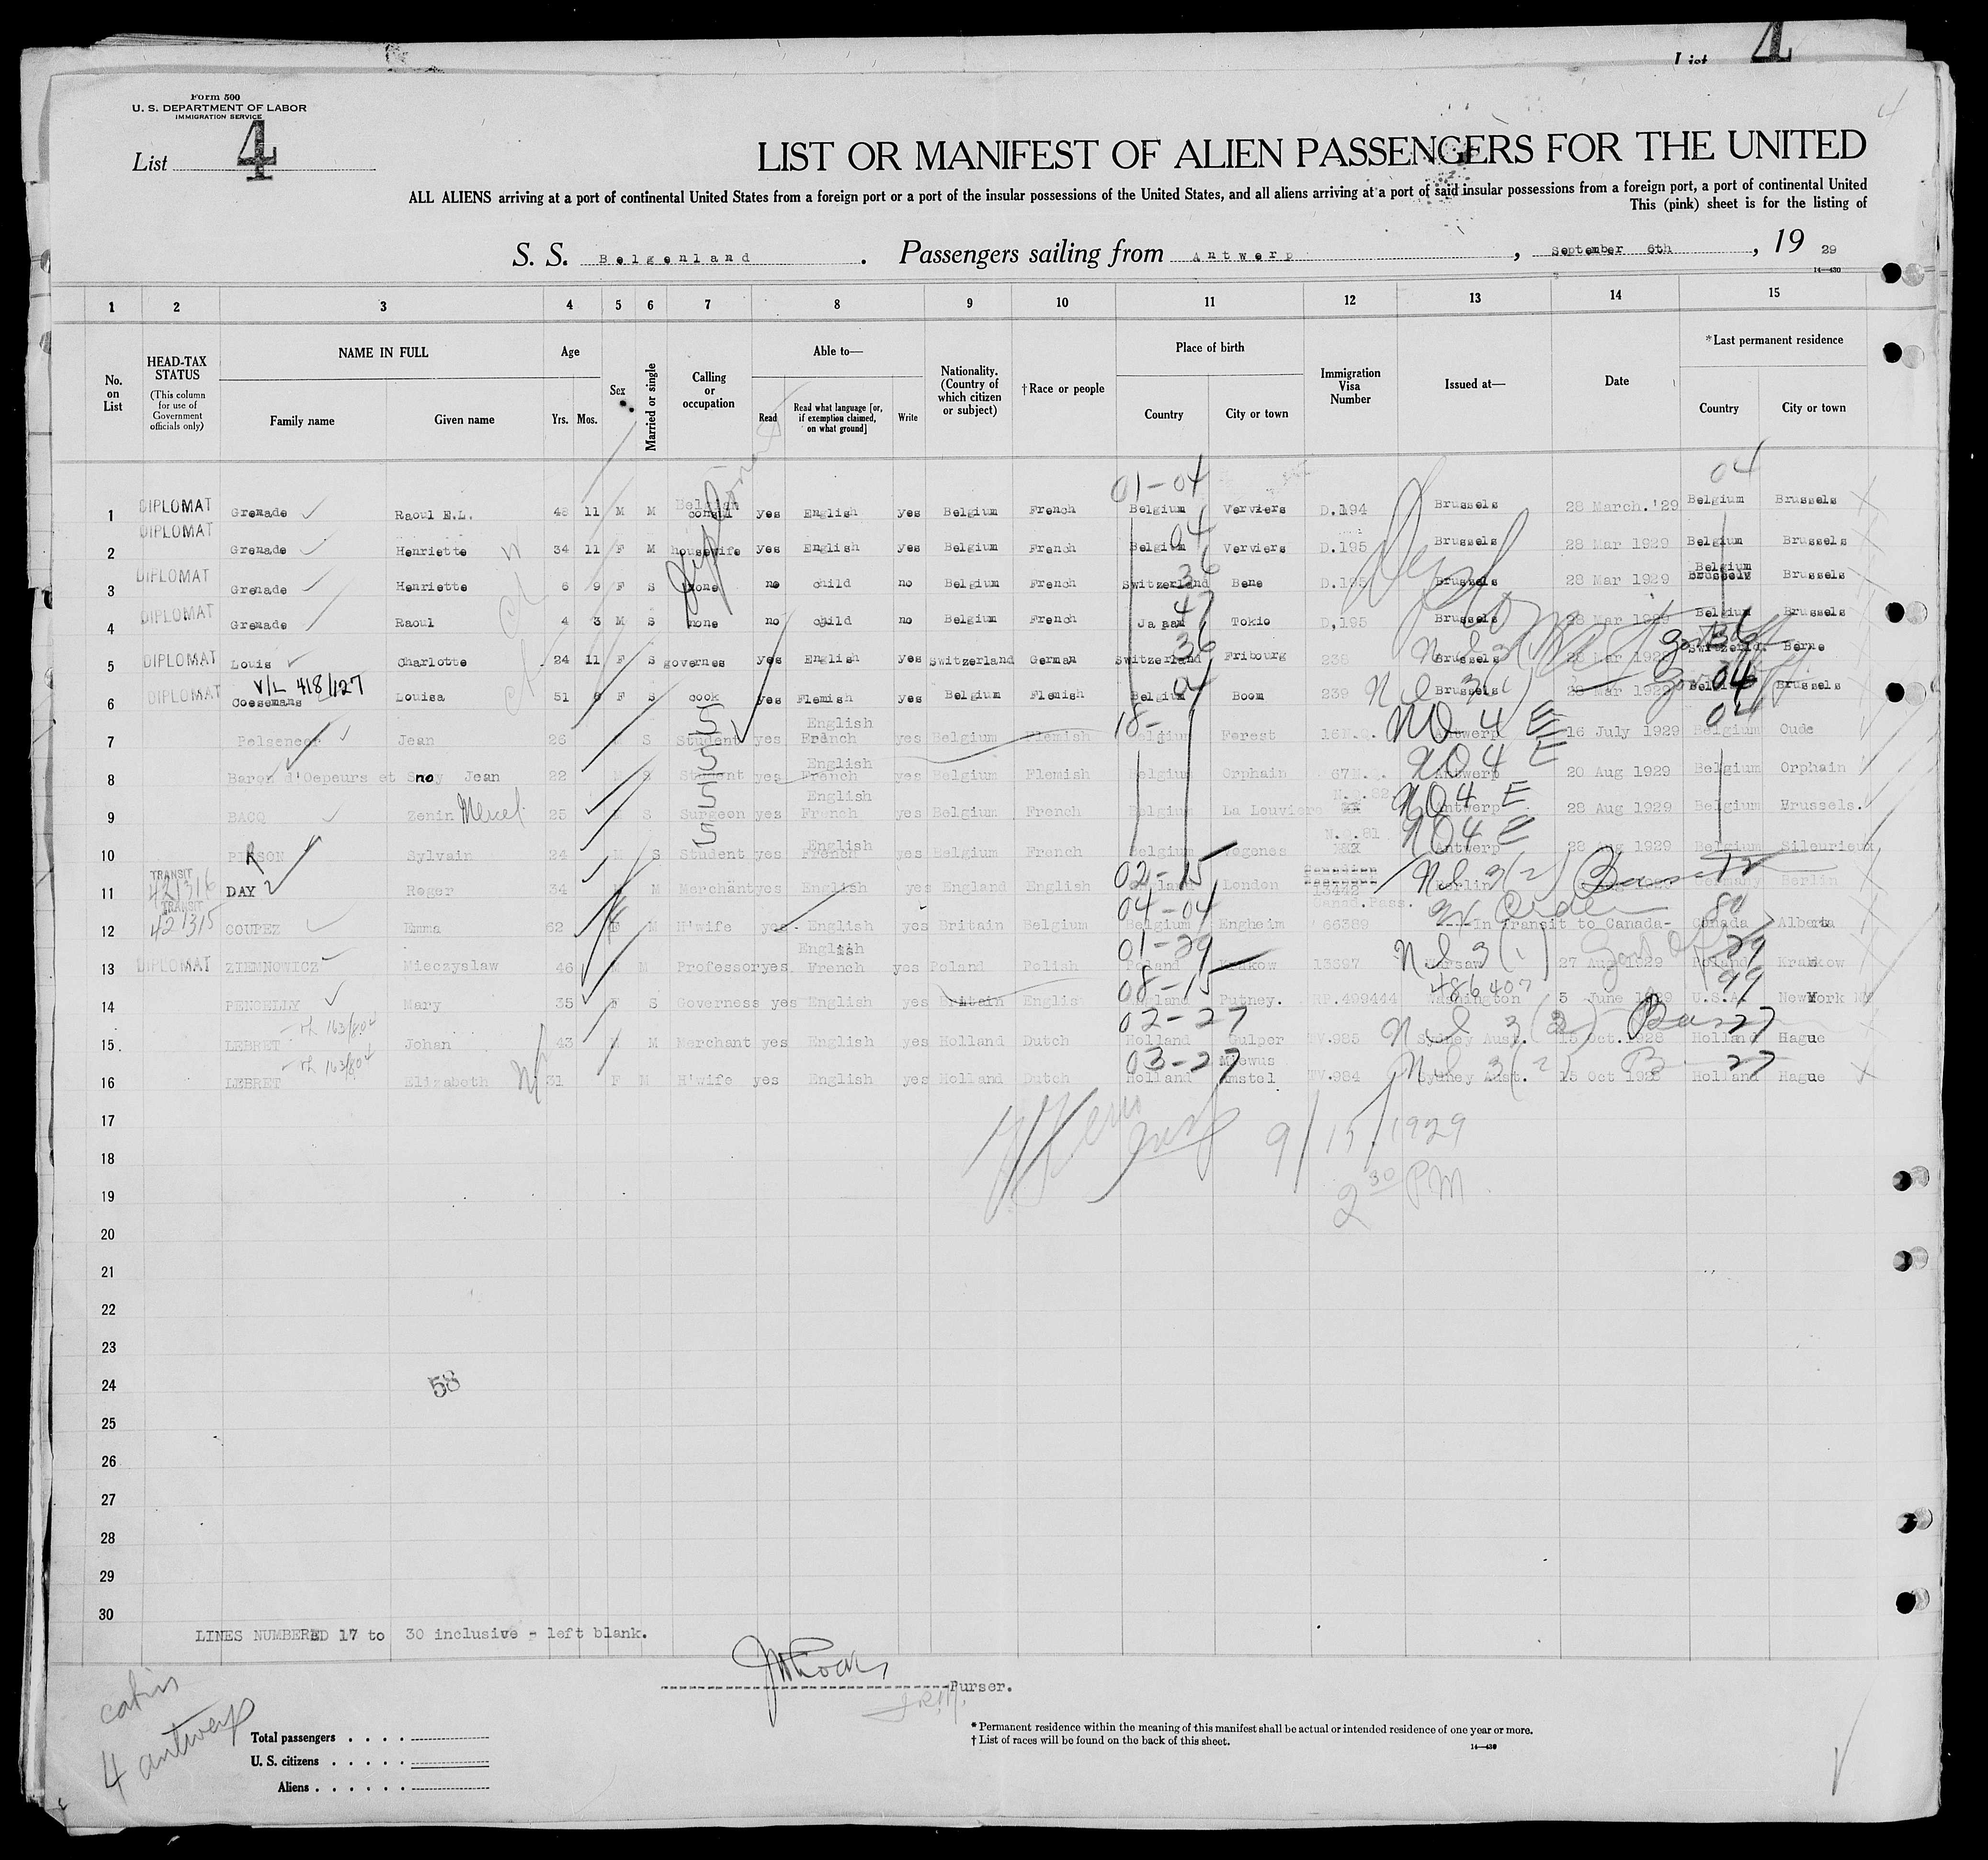 List 4
Form 500
U. S. DEPARTMENT OF LABOR
IMMIGRATION SERVICE
List 4
4
LIST OR MANIFEST OF ALIEN PASSENGERS FOR THE UNITED
ALL ALIENS arriving at a port of continental United States from a foreign port or a port of the insular possessions of the United States, and all aliens arriving at a port of said insular possessions from a foreign port, a port of continental United
This (pink) sheet is for the listing of
S. S. Belgenland . Passengers sailing from Antwerp , September 6th , 19 29
14—430
1 2 3 4 5 6 7 8 9 10 11 12 13 14 15
No. on List
HEAD-TAX STATUS (This column for use of Government officials only)
NAME IN FULL
Family name Given name
Age
Yrs. Mos.
Sex
Married or single
Calling or occupation
Able to—
Read Read what language [or, if exemption claimed, on what ground] Write
Nationality. (Country of which citizen or subject)
†Race or people
Place of birth
Country City or town
Immigration Visa Number
Issued at—
Date
*Last permanent residence
Country City or town
01-04 04
1 DIPLOMAT Grenade Raoul E.L. 48 11 M M Belgian consul yes English yes Belgium French Belgium Verviers D.194 Brussels 28 March.'29 Belgium Brussels
2 DIPLOMAT Grenade Henriette 34 11 F M housewife yes English yes Belgium French Belgium 04 Verviers D.195 Brussels 28 Mar 1929 Belgium Brussels
3 DIPLOMAT Grenade Henriette 6 9 F S none no child no Belgium French Switzerland 36 Bene D.195 Brussels 28 Mar 1929 Belgium Brussels
4 DIPLOMAT Grenade Raoul 4 3 M S none no child no Belgium French Japan 47 Tokio D,195 Brussels 28 Mar 1929 Belgium Brussels
5 DIPLOMAT Louis Charlotte 24 11 F S governes yes English yes Switzerland German Switzerland 36 Fribourg 238 Brussels 28 Mar 1929 Switzerld. 36 Berne
V/L 418/127
6 DIPLOMAT Coesemans Louisa 51 6 F S cook yes Flemish yes Belgium Flemish Belgium 04 Boom 239 Brussels 28 Mar 1929 Belgium 04 Brussels
7 Pelseneer Jean 26 M S Student yes English French yes Belgium Flemish Belgium Forest 16 Antwerp NO4 E 16 July 1929 Belgium Oude
8 Baron d'Oepeurs et Snoy Jean 22 M S Student yes English French yes Belgium Flemish Belgium Orphain 67 Antwerp NO4 E 20 Aug 1929 Belgium Orphain
9 BACQ Zenin Marcel 25 M S Surgeon yes English French yes Belgium French Belgium La Louviere Antwerp NO4 E 28 Aug 1929 Belgium Brussels.
10 Sylvain 24 M S Student yes English French yes Belgium French Belgium Antwerp NO4 E 28 Aug 1929 Belgium
11 TRANSIT 421316 DAY Roger 34 M M Merchant yes English yes England English England 02-15 London 13442 Berlin Germany Berlin
12 TRANSIT 421315 COUPEZ Emma 62 F M H'wife yes English yes Britain Belgium Belgium 04-04 Engheim Canad.Pass. 66389 In Transit to Canada- Canada Alberta
13 DIPLOMAT ZIEMNOWICZ Mieczyslaw 46 M M Professor yes English French yes Poland Polish Poland 01-29 Krakow 13397 Warsaw 27 Aug 1929 Poland 29 Krakow
14 PENGELLY Mary 35 F S Governess yes English yes Britain English England 08-15 Putney. RP.499444 486407 Washington 5 June 1929 U.S.A. 99 New York NY
15. LEBRET Johan 43 M M Merchant yes English yes Holland Dutch Holland 02-27 Gulper VV.985 Sydney Aust. 15 Oct.1928 Holland 27 Hague
16 LEBRET Elizabeth 31 F M H'wife yes English yes Holland Dutch Holland 03-27 Amstel VV.984 Sydney Aust. 15 Oct 1928 Holland 27 Hague
17 9/15/1929
18
19 2 30 PM
20
21
22
23
24 58
25
26
27
28
29
30
LINES NUMBERED 17 to 30 inclusive - left blank.
Purser.
cabin
4 antwerp
Total passengers
U. S. citizens
Aliens
*Permanent residence within the meaning of this manifest shall be actual or intended residence of one year or more.
† List of races will be found on the back of this sheet.
14—430